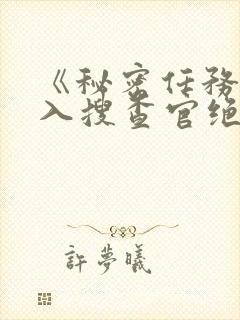 《秘密任务
入搜查官绝
許夢曦